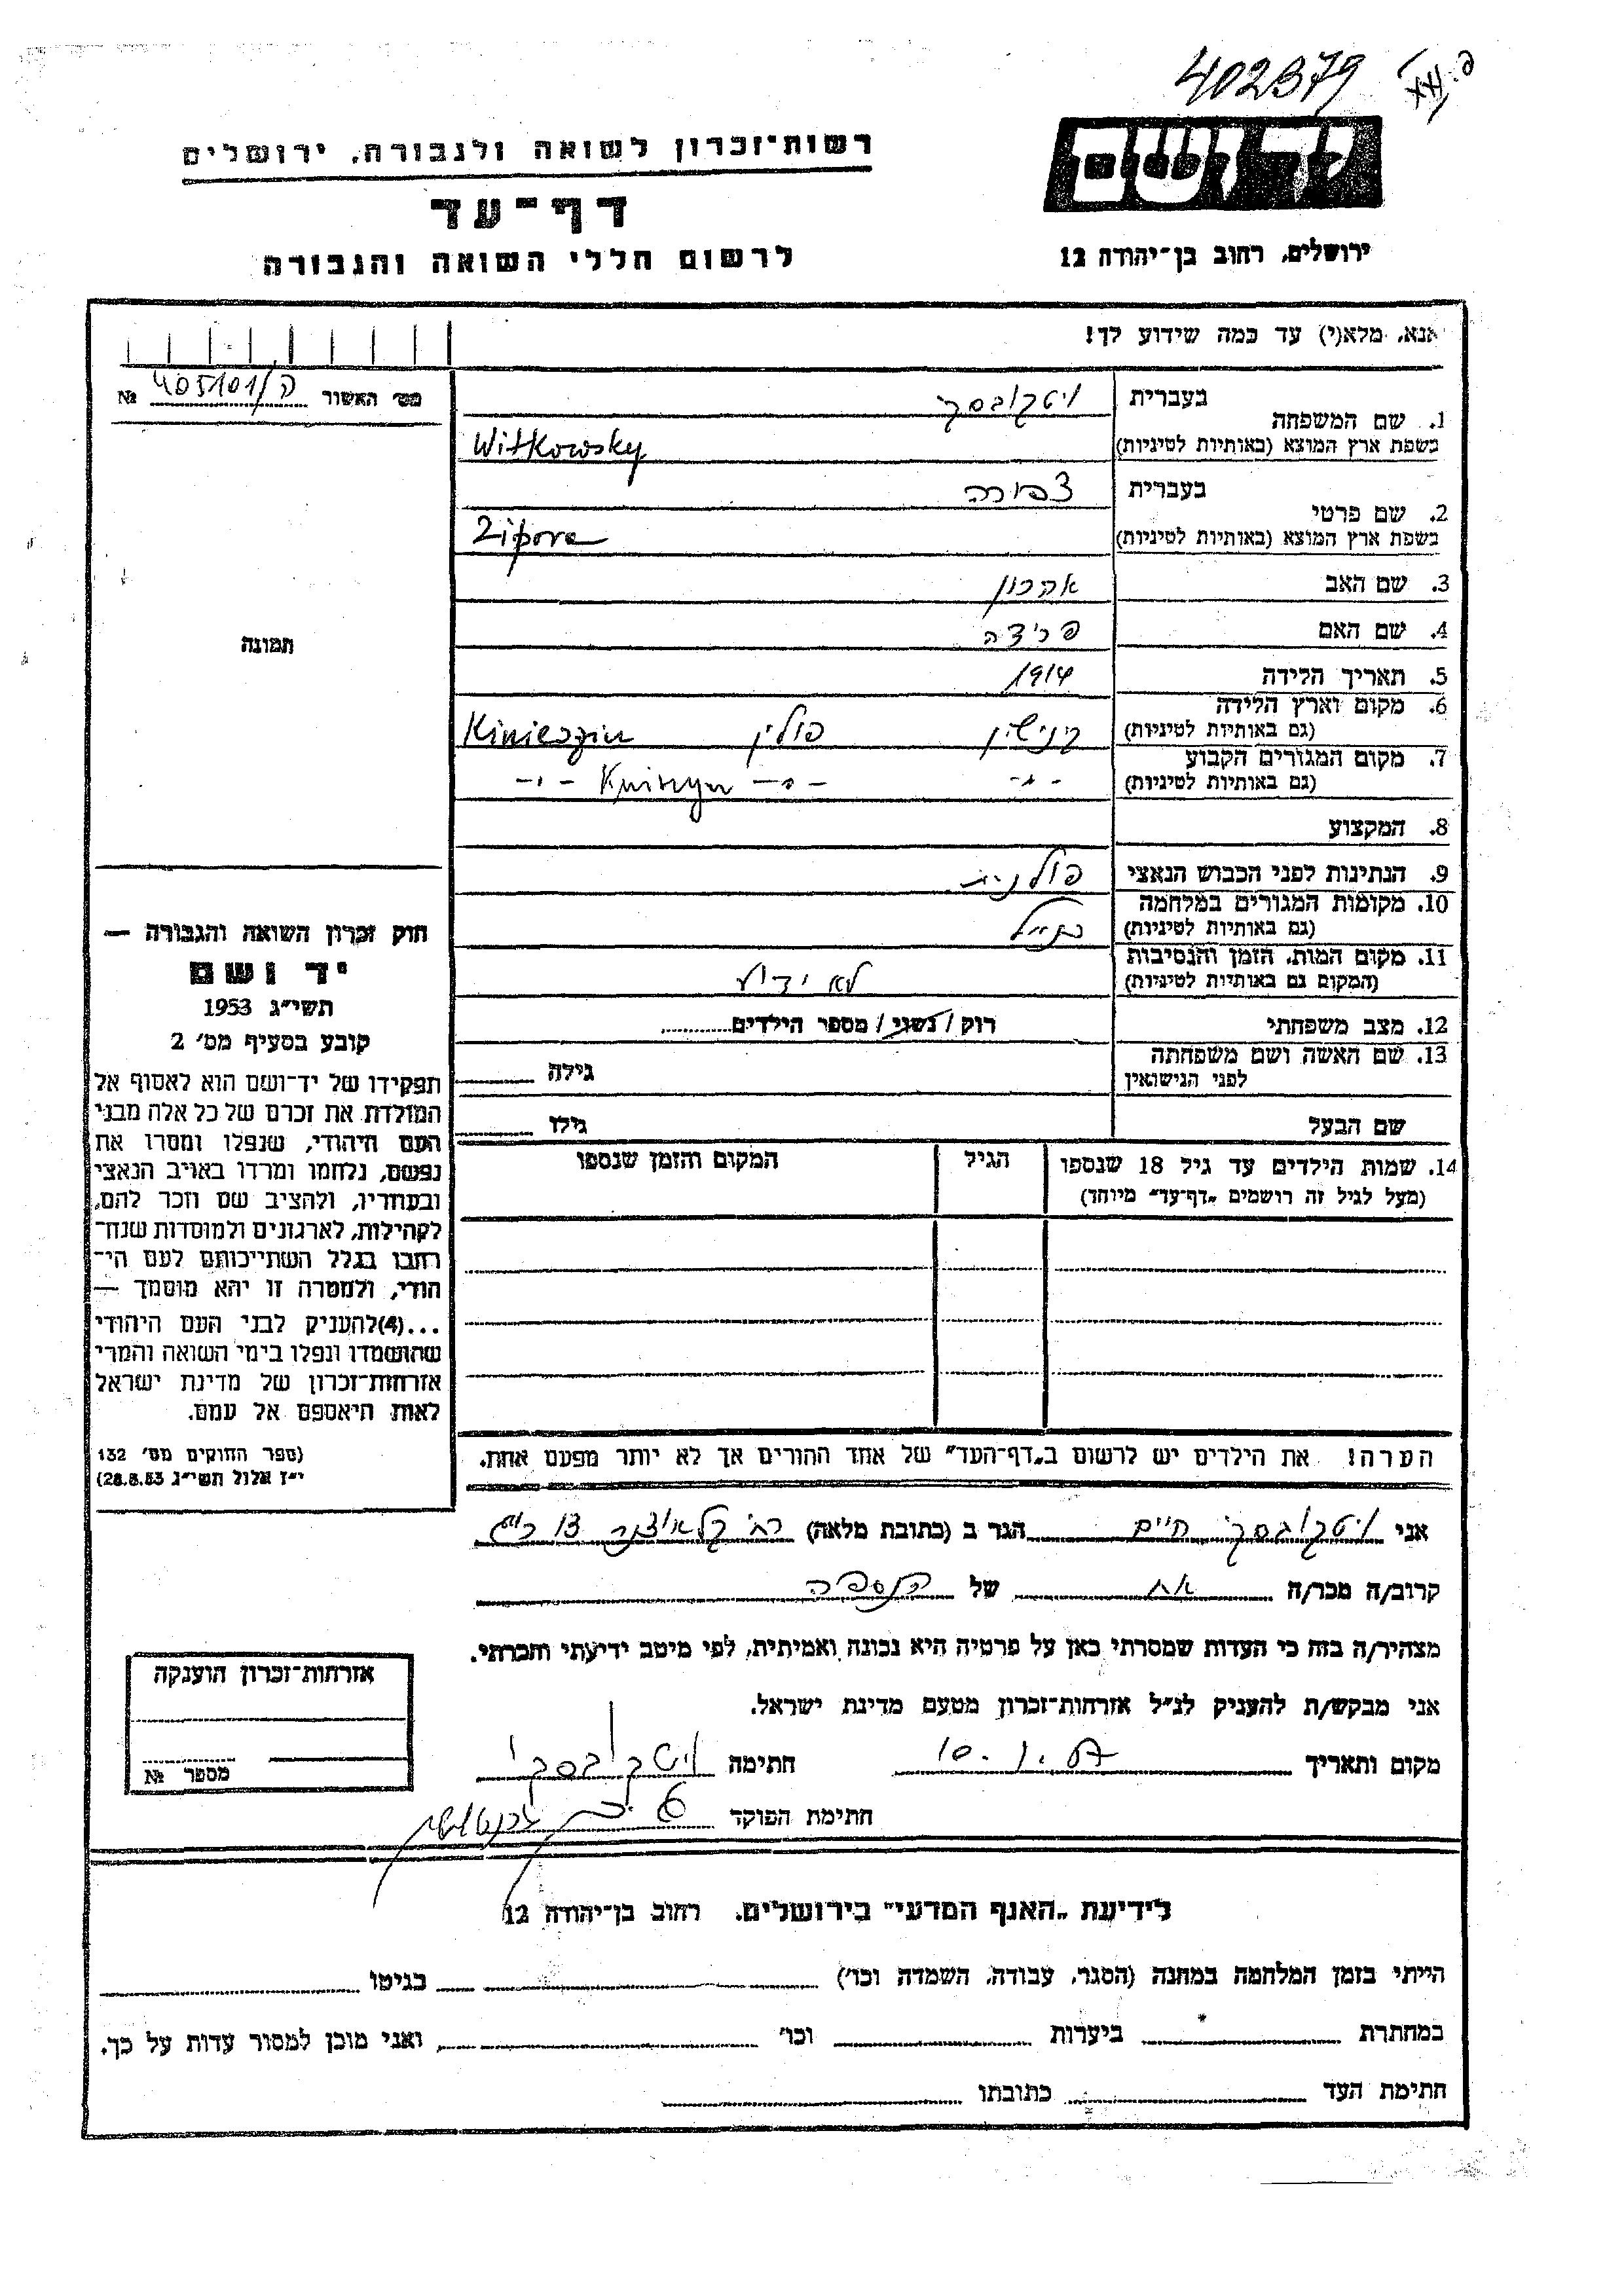 402379
יד ושם
רשות־זכרון לשואה ולגבורה, ירושלים
דף־עד
לרשום חללי השואה והגבורה
ירושלים, רחוב בן־יהודה 12
אנא, מלא(י) עד כמה שידוע לך!
מס׳ האשור № 405101/ה
תמונה
1. שם המשפחה בעברית ויטקובסקי
בשפת ארץ המוצא (באותיות לטיניות) Witkowsky
2. שם פרטי בעברית צפורה
בשפת ארץ המוצא (באותיות לטיניות) Zipora
3. שם האב אהרון
4. שם האם פריידה
5. תאריך הלידה 1914
6. מקום וארץ הלידה
(גם באותיות לטיניות) קנישין פולין Kinieszin
7. מקום המגורים הקבוע
(גם באותיות לטיניות) -"- -"- Kniszyn -"-
8. המקצוע
9. הנתינות לפני הכבוש הנאצי פולנית
10. מקומות המגורים במלחמה
(גם באותיות לטיניות) כנ״ל
11. מקום המות, הזמן והנסיבות
(המקום גם באותיות לטיניות) לא ידוע
12. מצב משפחתי רוק / נשוי / מספר הילדים
13. שם האשה ושם משפחתה
לפני הנישואין גילה
שם הבעל גילו
14. שמות הילדים עד גיל 18 שנספו הגיל המקום והזמן שנספו
(מעל לגיל זה רושמים „דף־עד״ מיוחד)
חוק זכרון השואה והגבורה —
יד ושם
תשי״ג 1953
קובע בסעיף מס׳ 2
תפקידו של יד־ושם הוא לאסוף אל
המולדת את זכרם של כל אלה מבני
העם היהודי, שנפלו ומסרו את
נפשם, נלחמו ומרדו באויב הנאצי
ובעוזריו, ולהציב שם וזכר להם,
לקהילות, לארגונים ולמוסדות שנח־
רבו בגלל השתייכותם לעם הי־
הודי, ולמטרה זו יהא מוסמך —
...(4)להעניק לבני העם היהודי
שהושמדו ונפלו בימי השואה והמרי
אזרחות־זכרון של מדינת ישראל
לאות היאספם אל עמם.
(ספר החוקים מס׳ 132
י״ז אלול תשי״ג 28.8.53)
הערה! את הילדים יש לרשום ב„דף־העד״ של אחד ההורים אך לא יותר מפעם אחת.
אני ויטקובסקי חיים הגר ב (כתובת מלאה) רח׳ קלאוזנר
קרוב/ה מכר/ה אח של הנספה
מצהיר/ה בזה כי העדות שמסרתי כאן על פרטיה היא נכונה ואמיתית, לפי מיטב ידיעתי והכרתי.
אני מבקש/ת להעניק לנ״ל אזרחות־זכרון מטעם מדינת ישראל.
מקום ותאריך 10.1.57 חתימה ויטקובסקי
חתימת הפוקד
אזרחות־זכרון הוענקה
מספר №
לידיעת „האגף המדעי״ בירושלים, רחוב בן־יהודה 12
הייתי בזמן המלחמה במחנה (הסגר, עבודה, השמדה וכו׳) בגיטו
במחתרת ביערות וכו׳ ואני מוכן למסור עדות על כך.
חתימת העד כתובתו